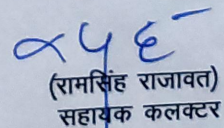 (रामसिंह राजावत)
सहायक कलक्टर